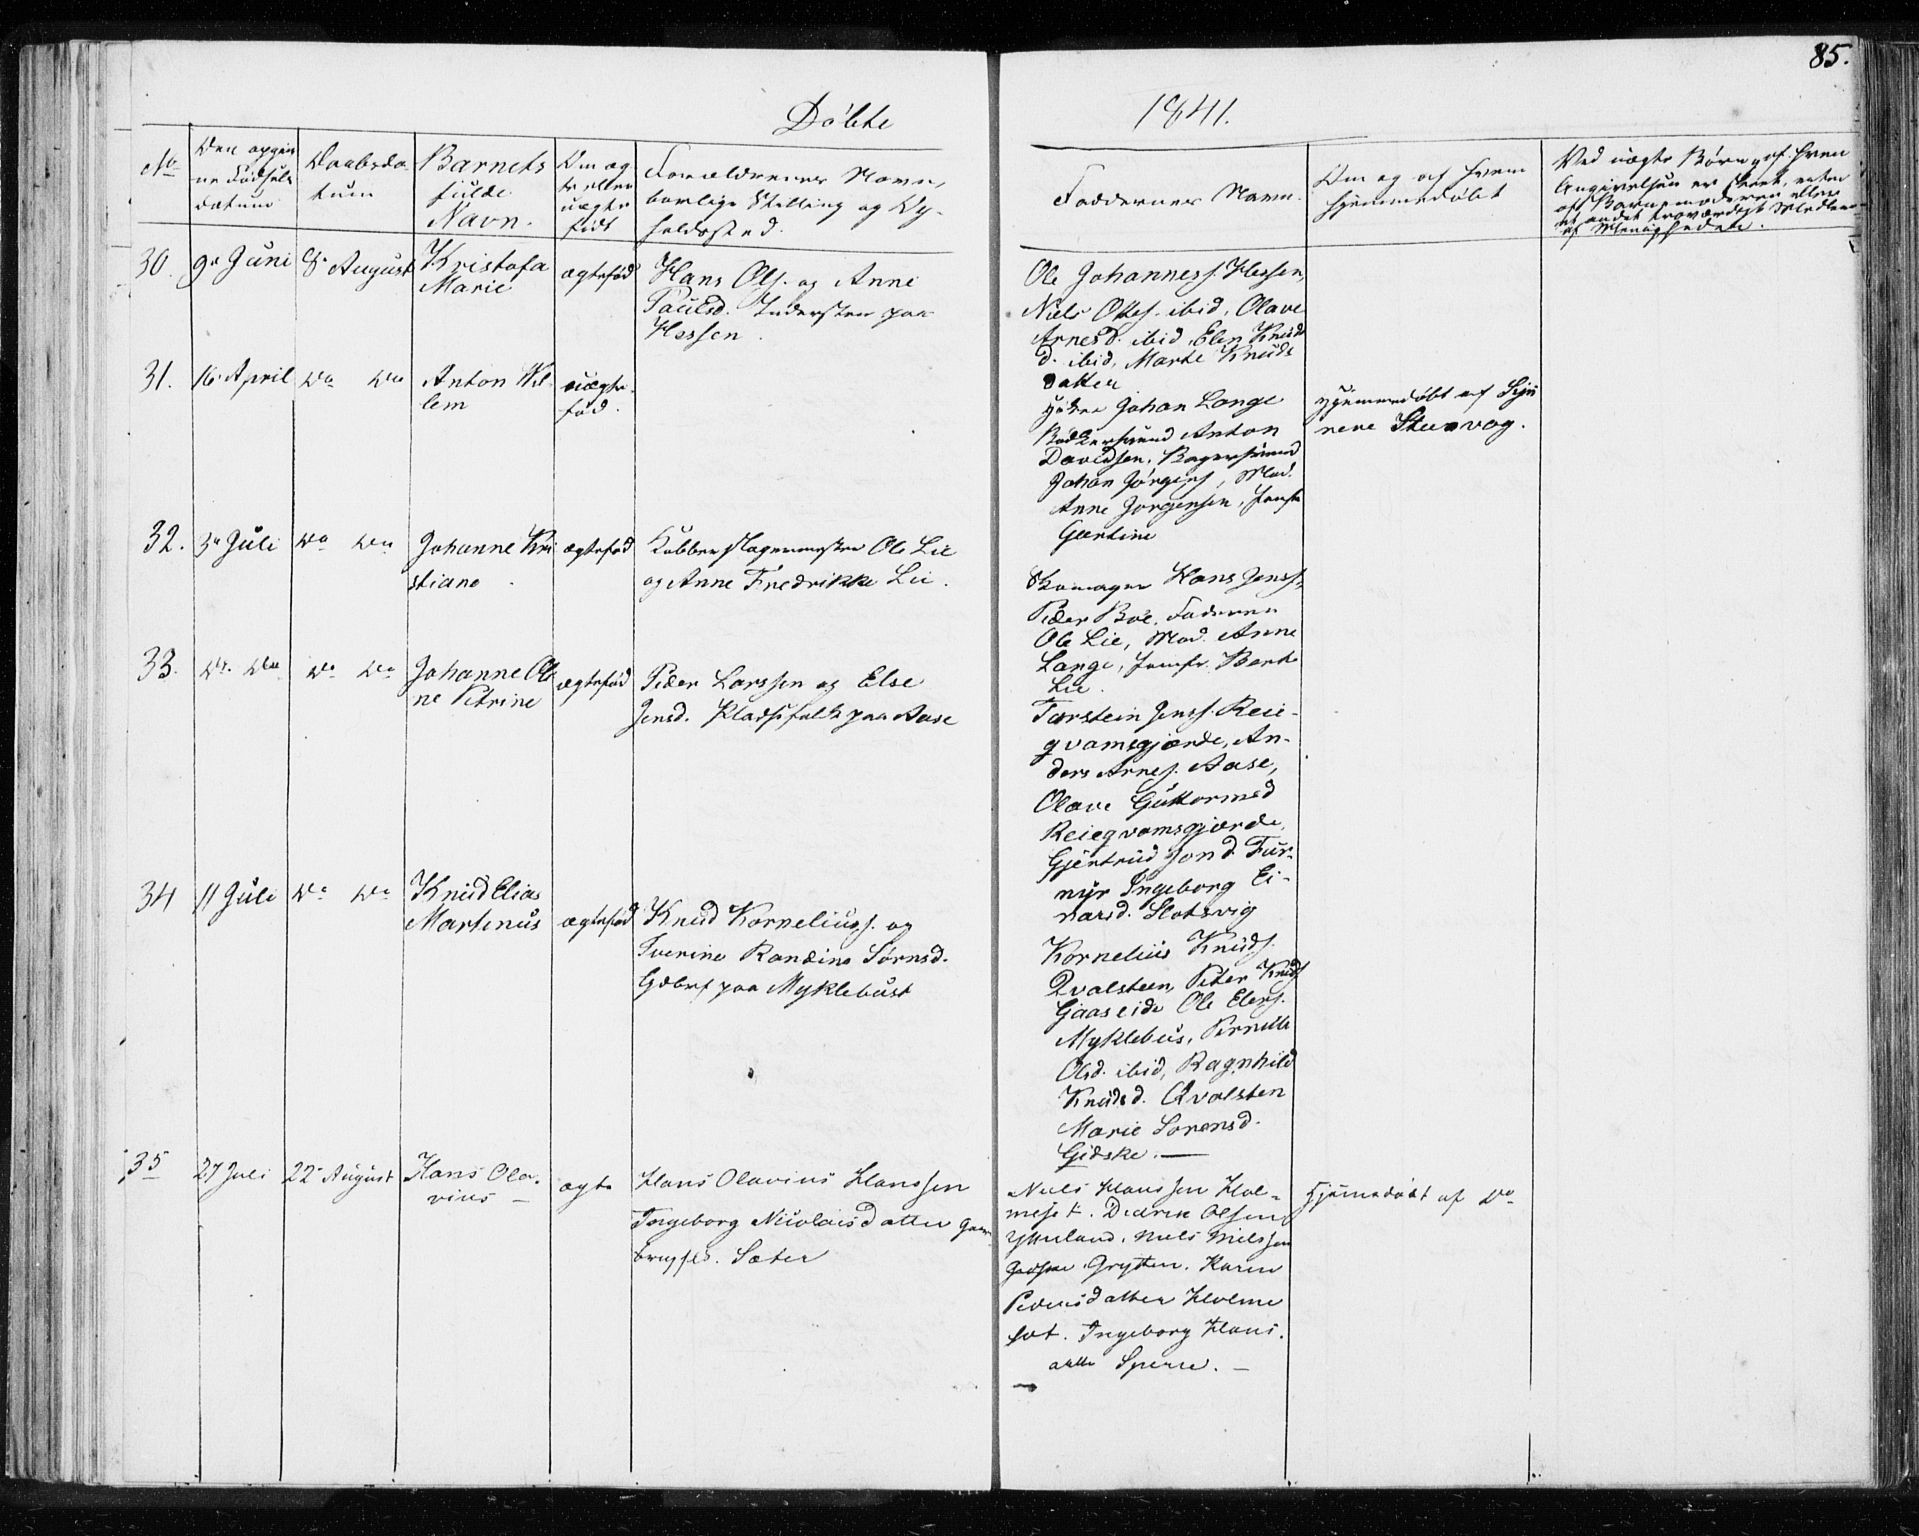 85.
Döbte
1841.
No
Den opgiv
ne Födsels
datum
Daabsda
tum
Barnets
fulde
Navn.
Om æg
te eller
uægte
födt
Forældrenes Navn,
borlige Stilling og Op-
holdssted.
Faddernes Navn.
Om og af hvem
hjemmedöbt
Ved uægte Börn, af hvem
Angivelsen er skeet, enten
af Barnemoderen eller
et andet troværdigt Medlem
af Menigheden.
30. 9de Juni 8de August Kristofa
Marie
ægtefød
Hans Ols. og Anne
Paulsd. Inderster paa
Hessen.
Ole Johanness. Hessen,
Niels Ottes. ibid, Olave
Arnesd. ibid, Elen Knuds
d. ibid, Marte Knuds
datter
31. 16 April Do Do Anton Wil
lem
uægte
fød.
Johan Lange
Bødkersvend Anton
Davidsen, Bagersvend
Johan Jørgens, Mad.
Anne Jørgensen, Jomfr
Gertine
Hjemmedöbt af Sig
nere Steenvog.
32. 3de Juli Do Do Johanne Kri
stiane
ægtefød
Kobberslagermester Ole Lie
og Anne Fredrikke Lie.
Skomager Hans Jenss.
Peder Boe, Faderen
Ole Lie, Mad. Anne
Lange, Jomfr. Berte
Lie.
33. Do Do Do Do Johanne Oli
ne Petrine
ægtefød
Peder Larssen og Else
Jensd. Pladsfolk paa Aase
Torstein Jenss. Reie-
qvamsgjærde, An-
ders Arnes. Aase,
Olave Guttormsd
Reieqvamsgjærde,
Gjertrud Jond. Fur-
myr Ingeborg Ei-
narsd. Slotsvig
34 11 Juli Do Do Knud Elias
Martinus
ægtefød
Knud Korneliuss. og
Iverine Randine Sørnsd.
Gdbrf paa Myklebust
Kornelius Knuds.
Qvalsteen, Peter Knuds
Gaaseide Ole Elers.
Myklebus, Pernille
Olsd. ibid, Ragnhild
Knudsd. Qvalsten
Marie Sorensd.
Gidske.
35 27 Juli 22 August Hans Ola-
vius
ægte
Hans Olavius Hanssen
Ingeborg Nicolaisdatter Gaar
brugfls. Sæter
Niels Hanssen Hol-
meset. Diderik Olsen
Ytterland. Niels Nielssen
Grytten. Karen
Pedersdatter Holme
set. Ingeborg Hans.
atter Sperre.
Hjemmedøbt af Do